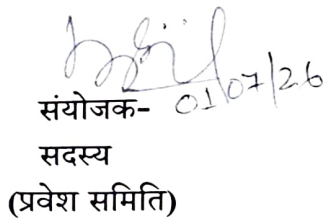 01/07/26
संयोजक-
सदस्य
(प्रवेश समिति)